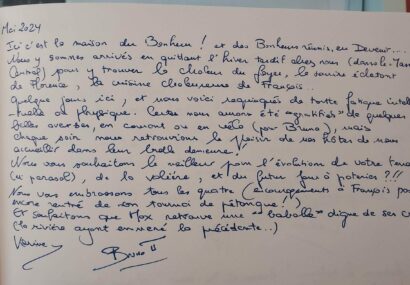 Mai 2024
Ici c'est la maison du Bonheur ! et des Bonheurs réunis, en Devenir...
Nous y sommes arrivés en quittant l'hiver tardif chez nous (dans le
) pour y trouver la chaleur du foyer, le sourire éclatant
de Florence, la cuisine chaleureuse de François..
quelques jours ici, et nous voici requinqués de toute fatigue intell-
-ectuelle ou physique. Certes nous avons été "gratifiés" de quelques
belles averses, en courant ou en vélo (pour Bruno), mais
chaque soir nous retrouvions le plaisir de nos hôtes de nous
accueillir dans leur belle demeure !
Nous vous souhaitons le meilleur pour l'évolution de votre
(ni parasol), de la volière, et du futur four à poteries ?!!
Nous vous embrassons tous les quatre (encouragements à François pas
encore rentré de son tournoi de pétanque !)
Et souhaitons que Max retrouve une "baballe" digne de ce
(la rivière ayant emmené la précédente..)
Bruno